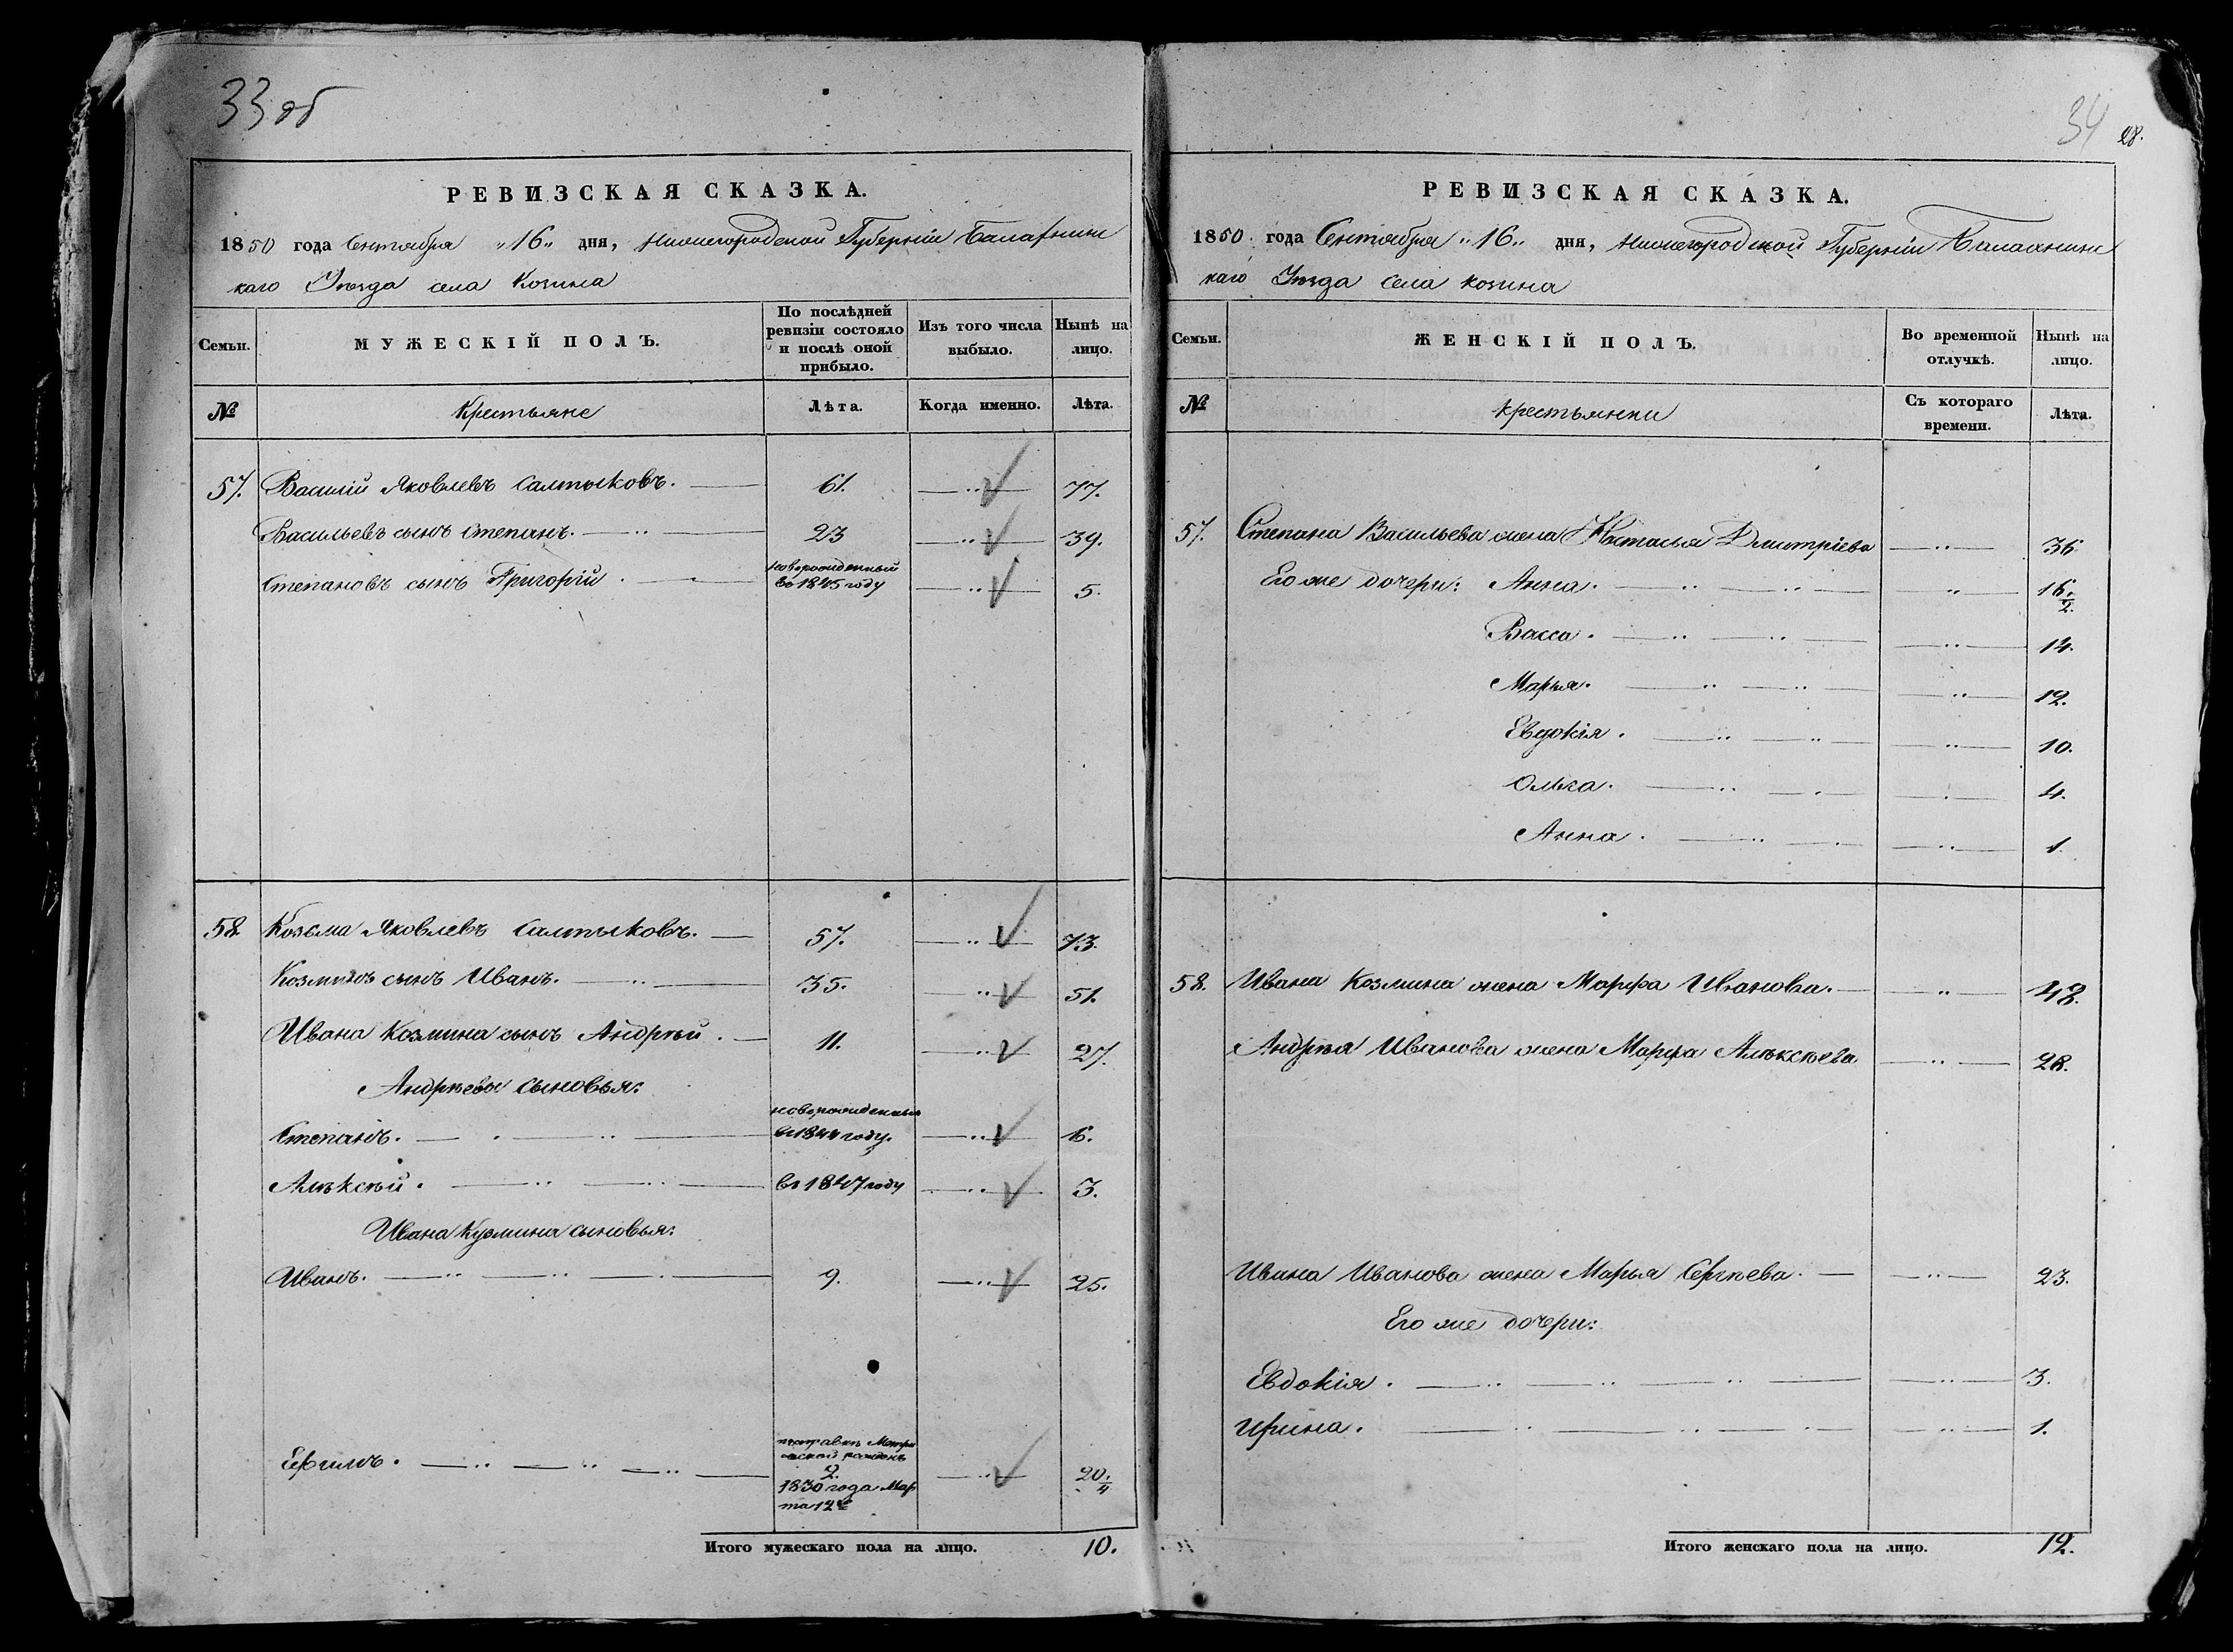 33 об
РЕВИЗСКАЯ СКАЗКА.
1850 года Сентября „16„ дня, Нижегородской Губерніи Балахнин
каго Уезда села Козина
Семьи.
МУЖЕСКІЙ ПОЛЪ.
По послѣдней ревизіи состояло и послѣ оной прибыло.
Изъ того числа выбыло.
Нынѣ на лицо.
№
Крестьяне
Лѣта.
Когда именно.
Лѣта.
57. Василій Яковлевъ Салтыковъ. 61. 77.
Васильевъ сынъ Степанъ. 23 39.
Степановъ сынъ Григорій. новорожденный во 1845 году 5.
58 Козьма Яковлевъ Салтыковъ. 57. 73.
Козминъ сынъ Иванъ. 35. 51.
Ивана Козмина сынъ Андрѣй. 11. 27.
Андрѣевы сыновья:
Степанъ. новорожденный въ 1844 году. 6.
Алѣксѣй. въ 1847 году 3.
Ивана Кузмина сыновья:
Иванъ. 9. 25.
Ефимъ. 1830 года Мар
та 12 20. 4
Итого мужескаго пола на лицо. 10.
34 28.
РЕВИЗСКАЯ СКАЗКА.
1850 года Сентября „16„ дня, Нижегородской Губерніи Балахнин
каго Уезда села Козина
Семьи.
ЖЕНСКІЙ ПОЛЪ.
Во временной отлучкѣ.
Нынѣ на лицо.
№
Крестьянки
Съ котораго времени.
Лѣта.
57. Степана Васильева жена Настасья Дмитріева 36
Его же дочери: Анна. 16. 2.
Васса. 14.
Марья. 12.
Евдокія. 10.
Олька. 4.
Анна. 1.
58. Ивана Козмина жена Марфа Иванова. 48.
Андрѣя Иванова жена Марфа Алѣксѣева 28.
Ивана Иванова жена Марья Сергѣева. 23.
Его же дочери:
Евдокія. 3.
Ирина. 1.
Итого женскаго пола на лицо. 12.